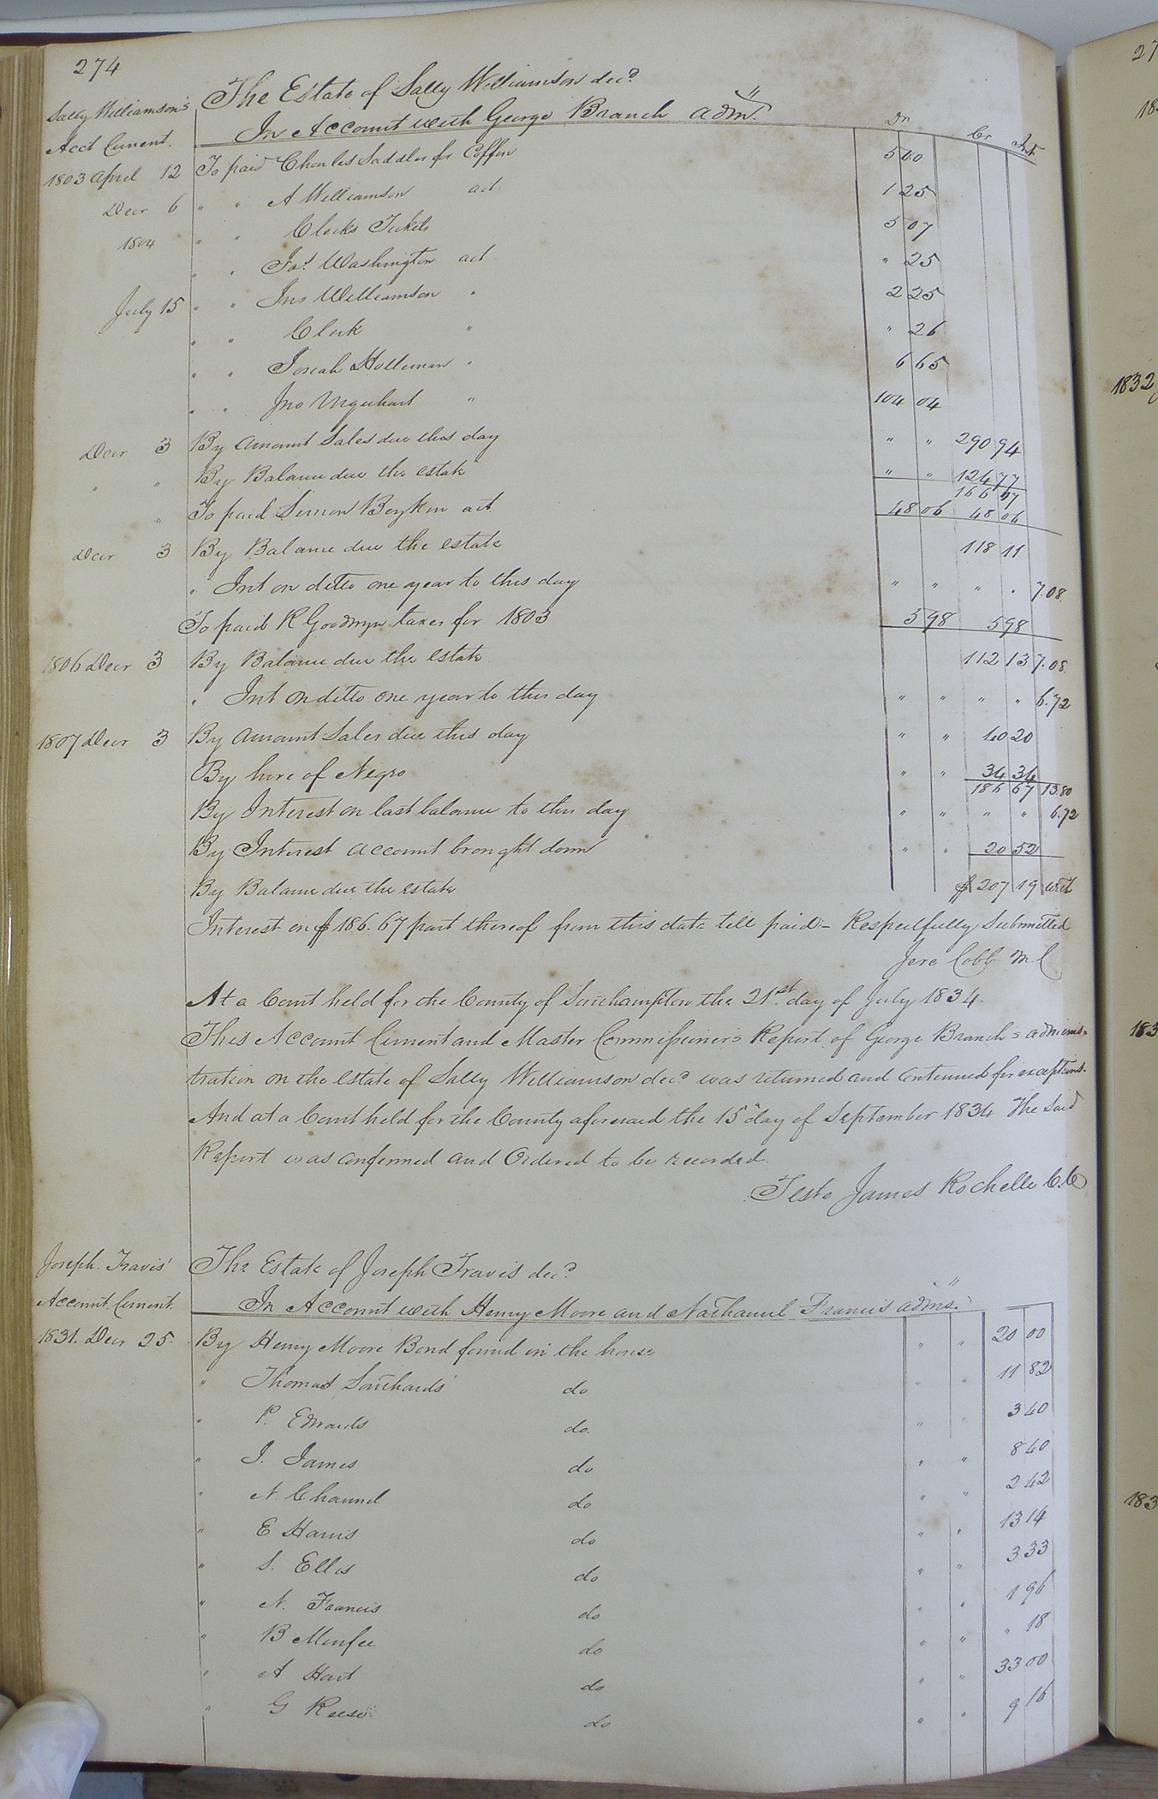 274
Sally Williamson's
Acct Current.
The Estate of Sally Williamson decd.
In Account with George Branch admr.
Dr Cr Int
1803 April 12 To paid Charles Saddler for Coffin 5 00
Decr 6 " " A Williamson act. 1 25
1804 " " Clerks Tickets 5 07
" " Jas. Washington act " 25
July 15 " " Jno Williamson " 2 25
" " Clerk " " 26
" " Josiah Holleman " 6 65
" " Jno Urquhart " 104 04
Decr 3 By amount Sales due this day " " 290 94
" " By Balance due the estate " " 124 77
166 67
" To paid Simon Boykin act 48 06 48 06
Decr 3 By Balance due the estate 118 11
" Int on ditto one year to this day " " " " 7.08
To paid R Goodwyn taxes for 1803 5 98 5 98
1806 Decr 3 By Balance due the estate 112 13 7.08
" Int on ditto one year to this day " " " " 6.72
1807 Decr 3 By amount Sales due this day " " 40 20
By hire of Negro " " 34 34
186 67 13 80
By Interest on last balance to this day " " " " 6.72
By Interest account brought down " " 20 52
By Balance due the estate $ 207 19 with
Interest on $186.67 part thereof from this date till paid - Respectfully Submitted
Jere Cobb M.C
At a Court held for the County of Southampton the 21st. day of July 1834
This Account Current and Master Commissioner's Report of George Branch's adminis-
tration on the estate of Sally Williamson decd was returned and Continued for exceptions.
And at a Court held for the County aforesaid the 15" day of September 1834 The said
Report was confirmed and Ordered to be recorded
Teste James Rochelle C.C
Joseph Travis'
Account Current.
The Estate of Joseph Travis decd.
In Account with Henry Moore and Nathaniel Francis admrs.
1831. Decr 25. By Henry Moore Bond found in the house " " 20 00
" Thomas do " " 11 82
" P. Edwards do. " " 3 40
" J. James do " " 8 40
" N Channel do " " 2 42
" E Harris do " " 13 14
" S. Ellis do " " 3 33
" N. Francis do " " 1 96
" B do " " " 18
" A Hart do " " 33 00
" G Reese do " " 9 16
27
1832
183
183